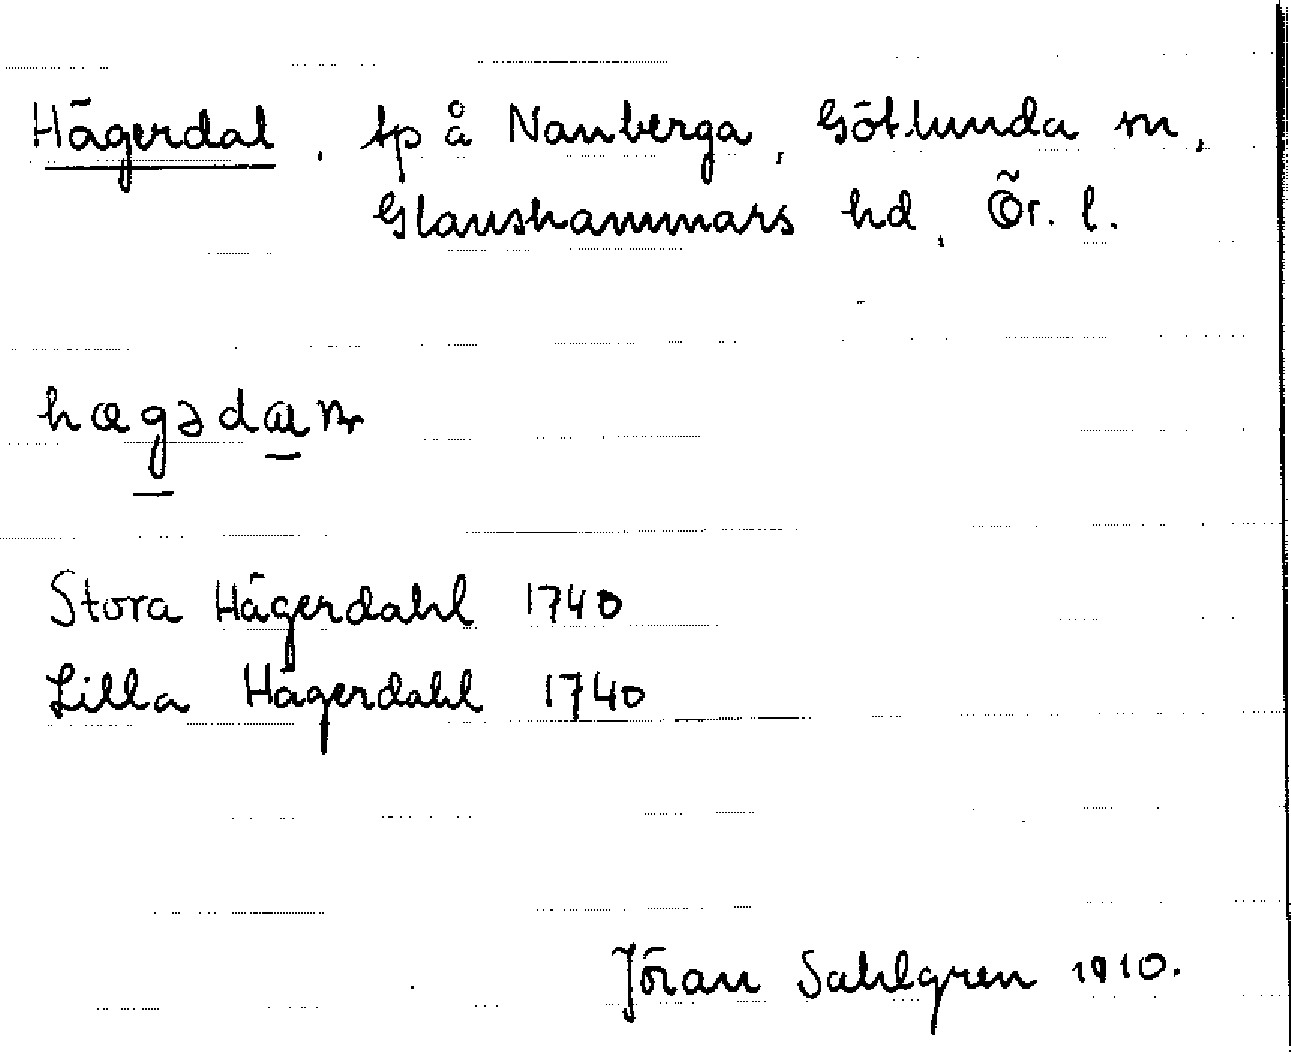 Hägerdal, tp å Nanberga, Götlunda sn,
Glanshammars hd, Ör. l.
Stora Hägerdahl 1740
Lilla Hägerdahl 1740
Jöran Sahlgren 1910.